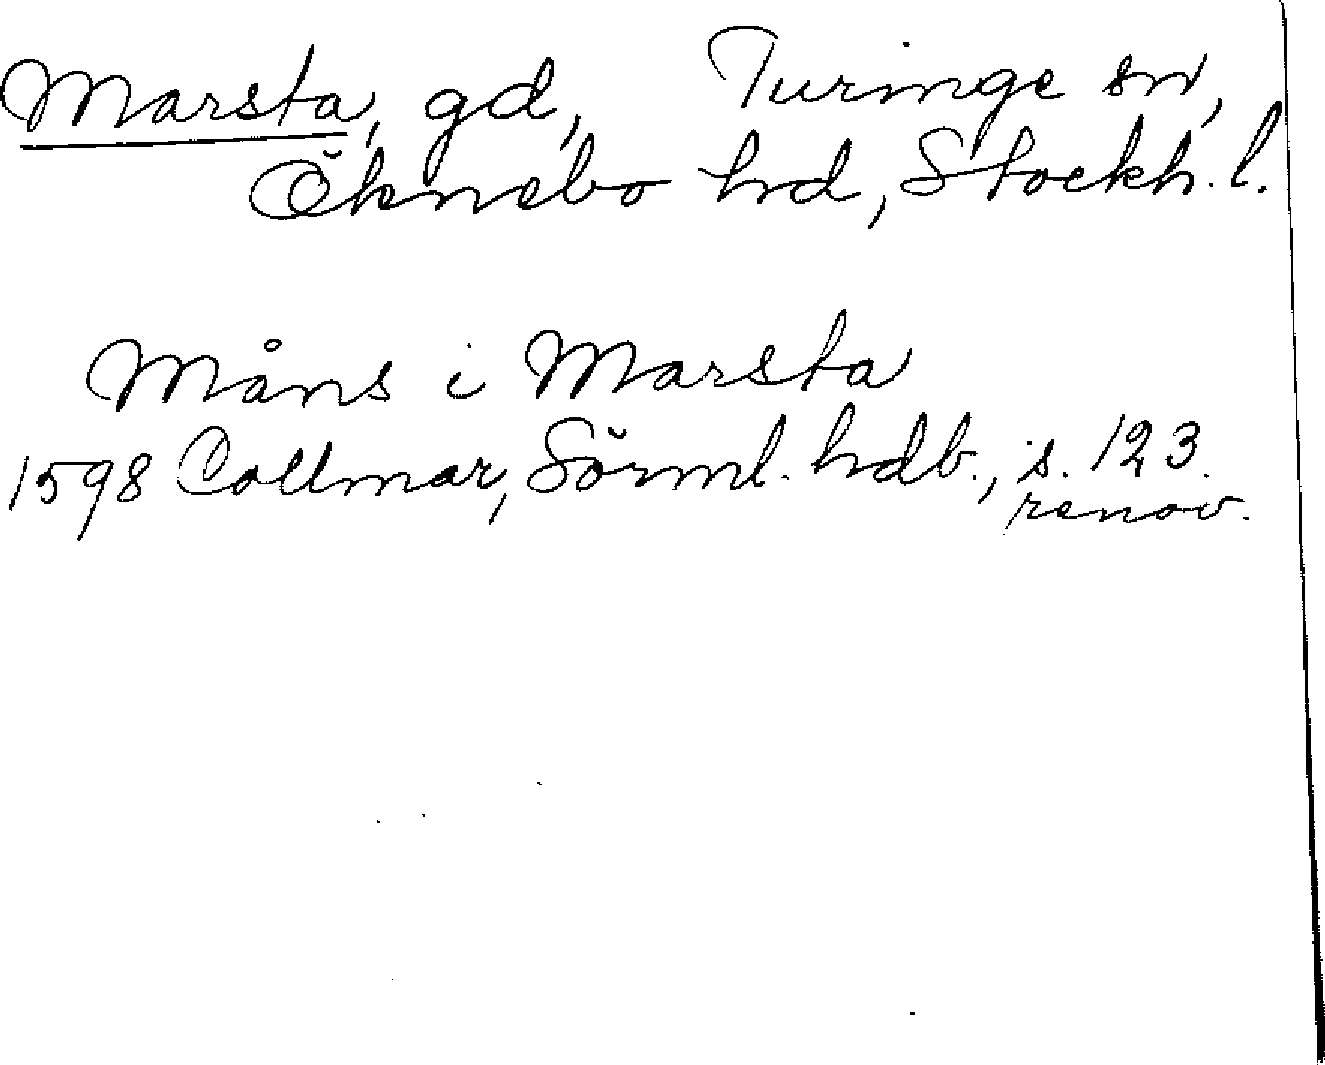 Marsta, gd, Turinge sn,
Öknebo hd, Stockh. l.
Måns i Marsta
1598 Collmar, Sörml. hdb., s. 123.
renov.